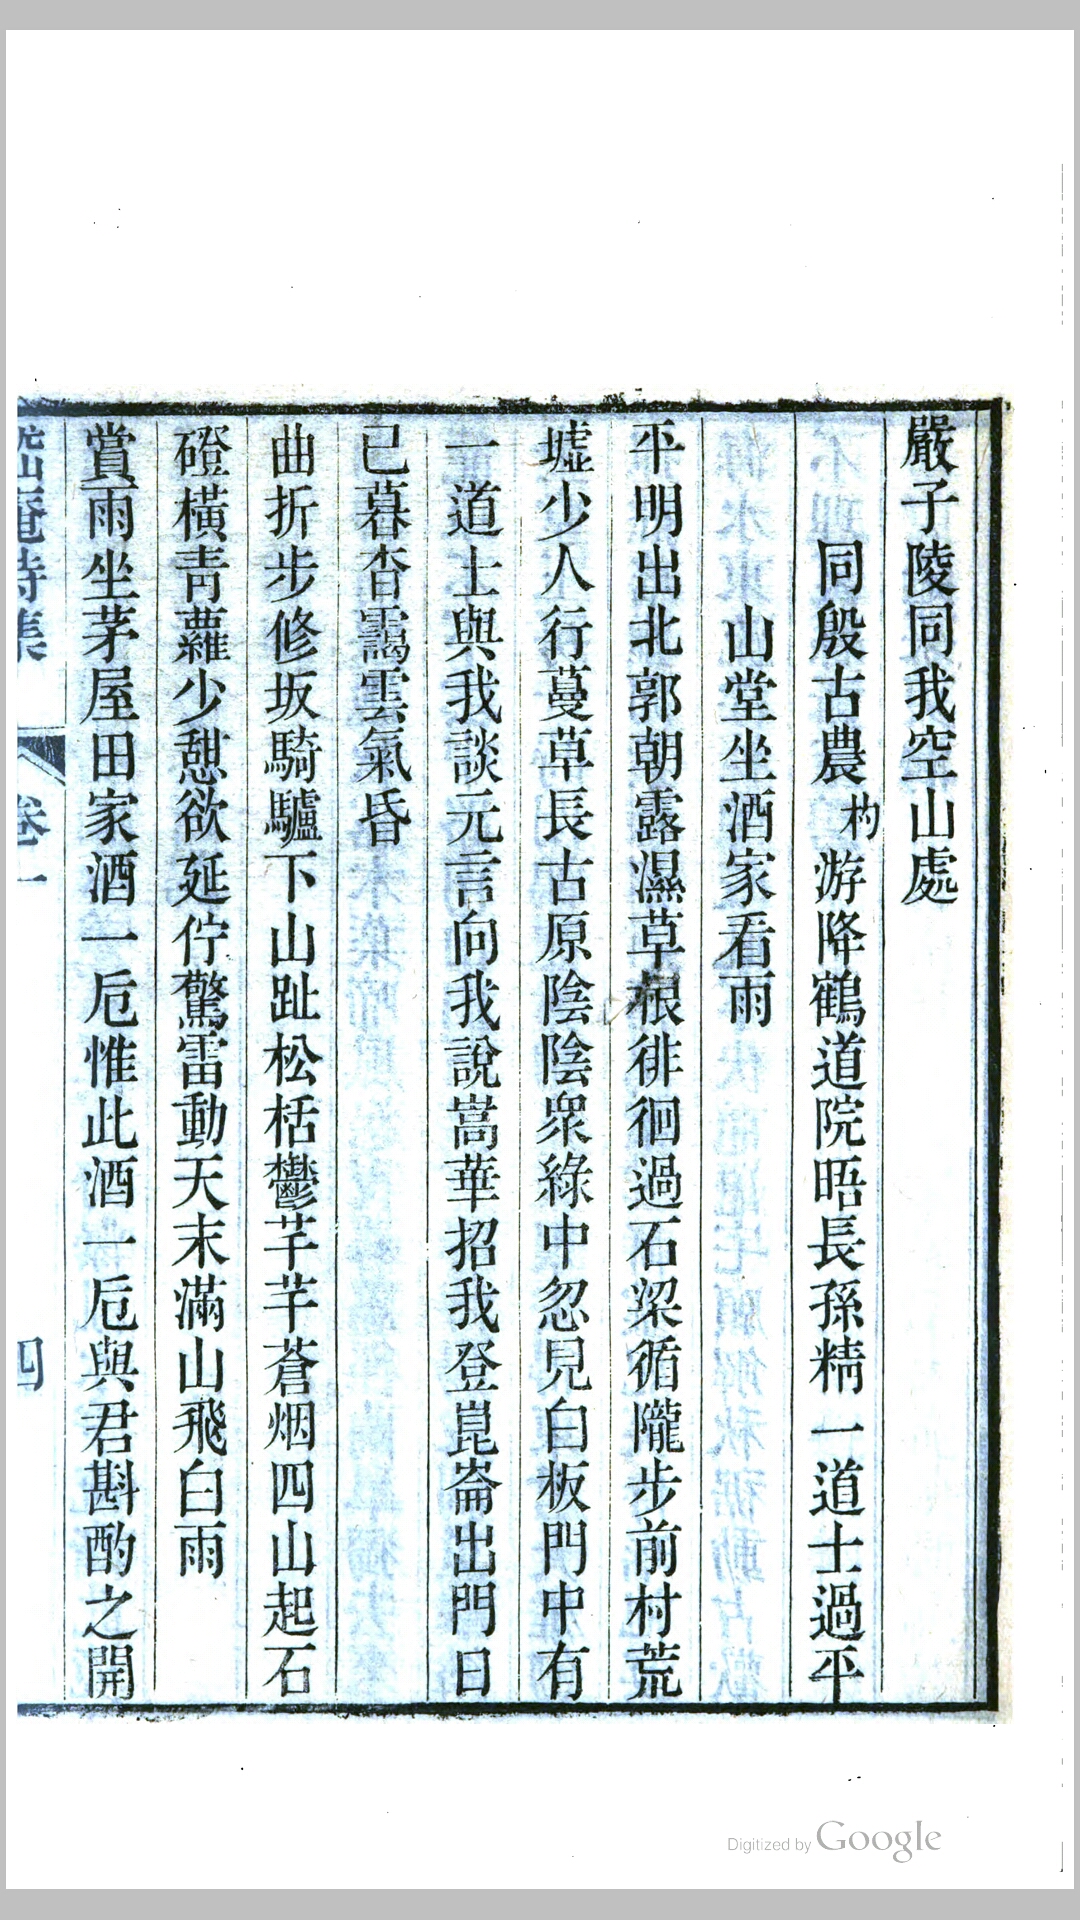 嚴子陵同我空山處
同殷古農杓游降鶴道院晤長孫精一道士過平
山堂坐酒家看雨
平明出北郭朝露濕草根徘徊過石梁循隴步前村荒
墟少人行蔓草長古原陰陰衆綠中忽見白板門中有
一道士與我談元言向我說嵩華招我登崑崙出門日
已暮杳靄雲氣昏
曲折步修坂騎驢下山趾松栝鬱芊芊蒼烟四山起石
磴橫青蘿少憩欲延佇驚雷動天末滿山飛白雨
賞雨坐茅屋田家酒一卮惟此酒一卮與君斟酌之開
菴詩集 卷一 四
Digitized by Google